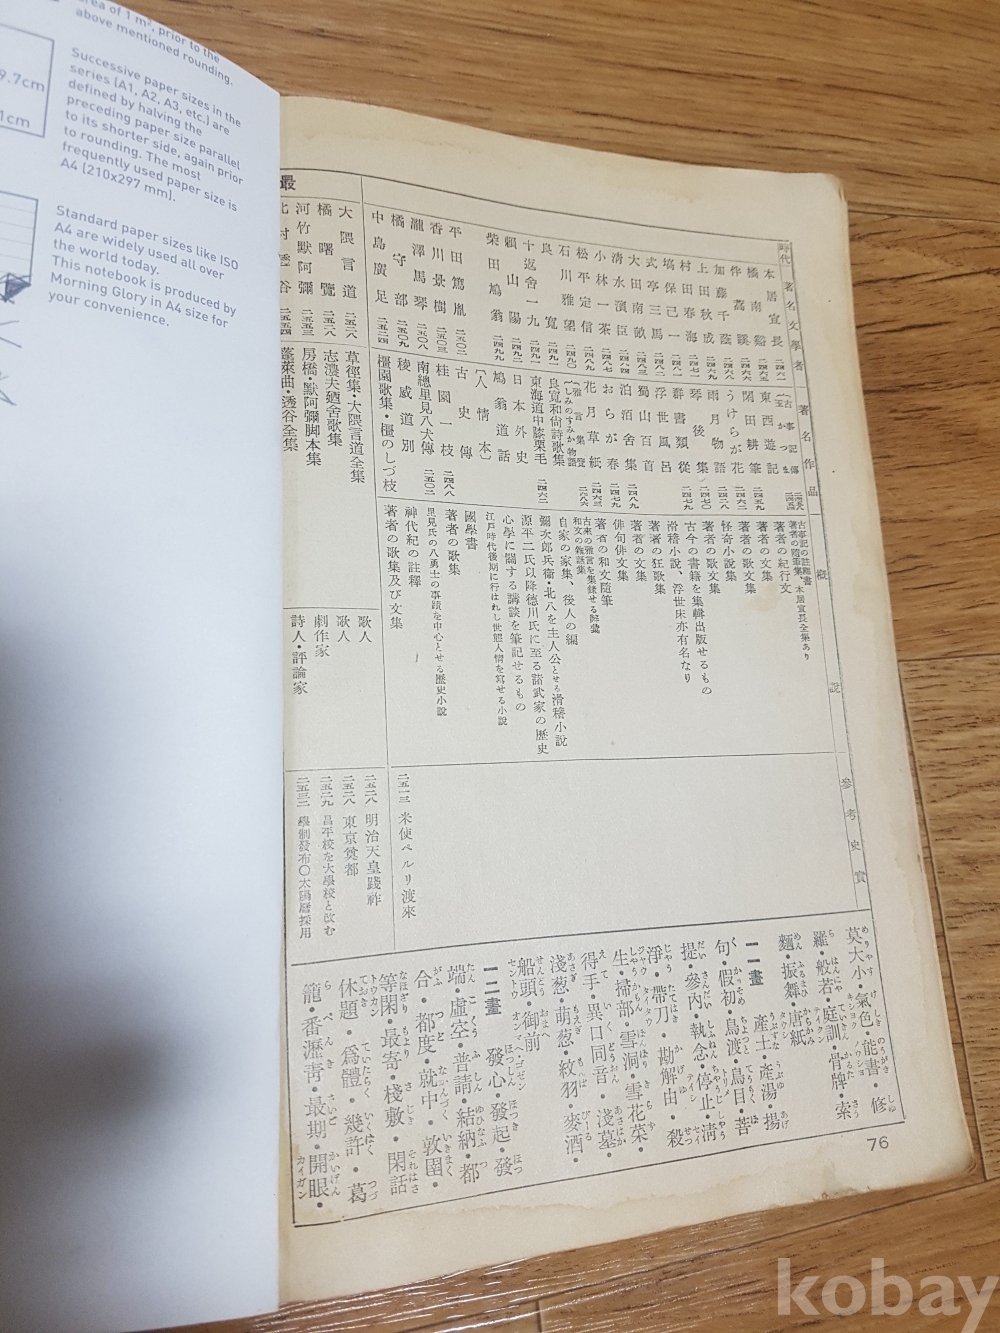 area of 1 m², prior to the
above mentioned rounding.
9.7cm
1cm
Successive paper sizes in the
series (A1, A2, A3, etc.) are
defined by halving the
preceding paper size parallel
to its shorter side, again prior
to rounding. The most
frequently used paper size is
A4 (210x297 mm).
Standard paper sizes like ISO
A4 are widely used all over
the world today.
This notebook is produced by
Morning Glory in A4 size for
your convenience.
時代 著名文學者 著名作品 概說 參考史實
本居宣長
橘南谿 東西遊記 著者の紀行文
伴蒿蹊 閑田耕筆 著者の文集
加藤千蔭 うけらが花 著者の歌文集
上田秋成 雨月物語 怪奇小說集
村田春海 琴後集 著者の歌文集
塙保己一 群書類從 古今の書籍を集輯出版せるもの
式亭三馬 浮世風呂 滑稽小說、浮世床亦有名なり
大田南畝 蜀山百首 著者の狂歌集
清水濱臣 泊洦舍集 著者の文集
小林一茶 おらが春 俳句俳文集
松平定信 花月草紙 著者の和文隨筆
石川雅望 雅言集覽 古來の雅言を集錄せる辭彙
しみのすみか物語 和文の雜話集
良寬 良寬和尙詩歌集 自家の家集、後人の編
十返舍一九 東海道中膝栗毛 彌次郎兵衞・北八を主人公とせる滑稽小說
賴山陽 日本外史 源平二氏以降德川氏に至る諸武家の歷史
柴田鳩翁 鳩翁道話 心學に關する講談を筆記せるもの
〔人情本〕 江戶時代後期に行はれし世態人情を寫せる小說
平田篤胤 古史傳 國學書
香川景樹 桂園一枝 著者の歌集
瀧澤馬琴 南總里見八犬傳 里見氏の八勇士の事蹟を中心とせる歷史小說
橘守部 稜威道別 神代紀の註釋
中島廣足 橿園歌集・橿のしづ枝 著者の歌集及び文集
二五一三 米使ペルリ渡來
最
大隈言道 二五二八 草徑集・大隈言道全集 歌人 二五二八 明治天皇踐祚
橘曙覽 二五二八 志濃夫廼舍歌集 歌人 二五二八 東京奠都
河竹默阿彌 二五五三 房橋・默阿彌脚本集 劇作家 二五二九 昌平校を大學校と改む
北村透谷 二五五四 蓬萊曲・透谷全集 詩人・評論家 二五三二 學制發布〇太陽曆採用
莫大小・氣色・能書・修
羅・般若・庭訓・骨牌・索
麵・振舞・唐紙
一一畫 產土・產湯・揚
句・假初・鳥渡・鳥目・菩
提・參內・執念・停止・淸
淨・帶刀・勘解由・殺
生・掃部・雪洞・雪花菜・
得手・異口同音・淺墓・
淺葱・萌葱・紋羽・麥酒・
船頭・御前
一二畫 發心・發起・發
端・虛空・普請・結納・都
合・都度・就中・敦圉・
等閑・最寄・棧敷・閑話
休題・爲體・幾許・葛
籠・番瀝靑・最期・開眼・
76
kobay